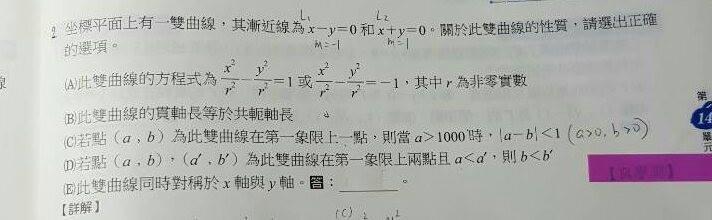 L₁ L₂
2. 坐標平面上有一雙曲線,其漸近線為 x−y=0 和 x+y=0。關於此雙曲線的性質,請選出正確
m=-1 m=1
的選項。
(A)此雙曲線的方程式為 x²/r² − y²/r² =1 或 x²/r² − y²/r² =−1,其中 r 為非零實數
(B)此雙曲線的貫軸長等於共軛軸長
(C)若點(a,b)為此雙曲線在第一象限上一點,則當 a>1000 時,|a−b|<1 (a>0, b>0)
(D)若點(a,b),(a′,b′)為此雙曲線在第一象限上兩點且 a<a′,則 b<b′
(E)此雙曲線同時對稱於 x 軸與 y 軸。答:______。
【詳解】
(C)
線
第
14
單
元